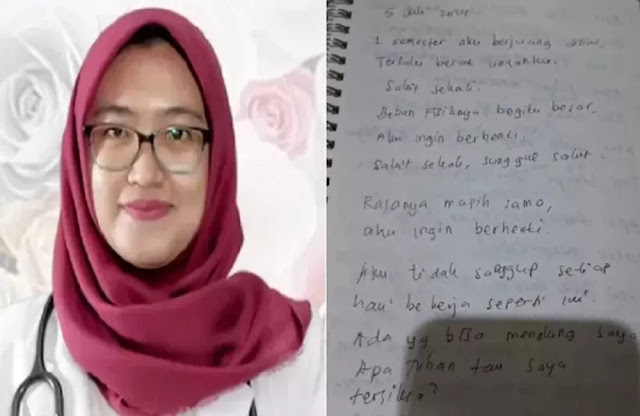 5 Juli 2022
1 semester aku berjuang disini,
Terlalu berat untukku.
Sakit sekali.
Beban Fisiknya begitu besar.
Aku ingin berhenti.
Sakit sekali, sungguh sakit.
Rasanya masih sama,
aku ingin berhenti.
Aku tidak sanggup setiap
hari bekerja seperti ini.
Ada yg bisa menolong saya
Apa Tuhan tau saya
tersiksa?